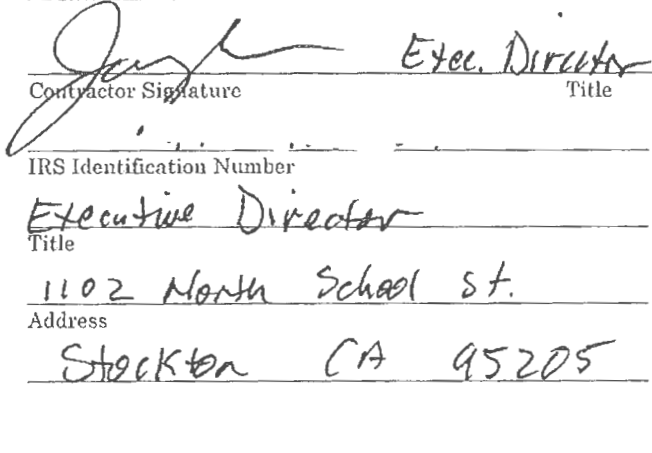 Exec. Director
Contractor Signature Title
IRS Identification Number
Executive Director
Title
1102 North School St.
Address
Stockton CA 95205